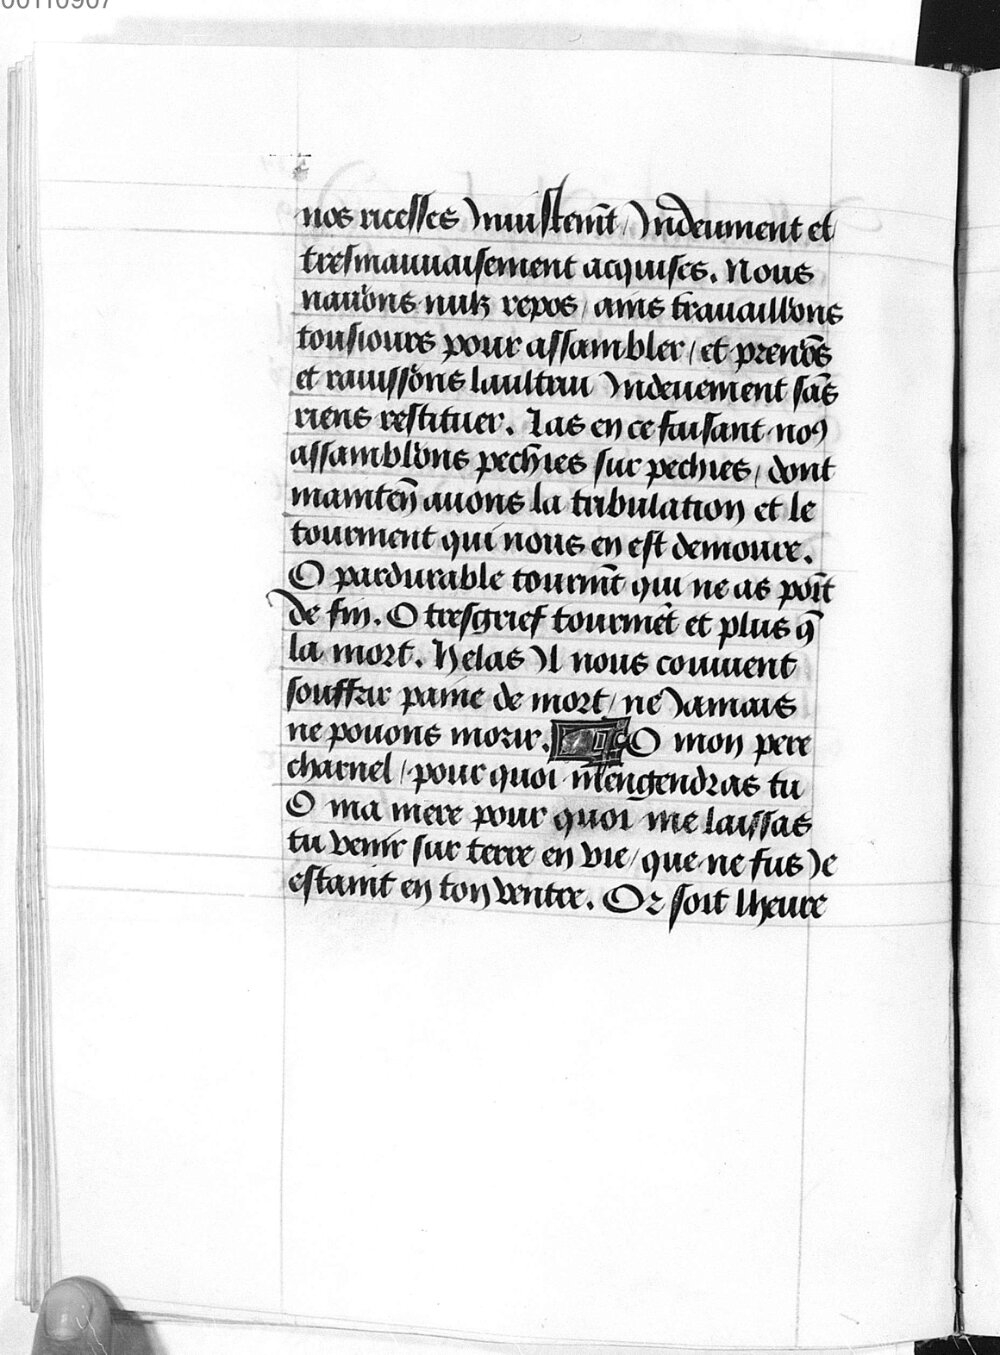 00110907
nos ricesses Iniustemēt / Indeument et
tresmauuaisement acquises. Nous
nauōns nulz repos / ains trauaillōns
tousiours pour assambler / et prenōs
et rauissōns laultrui Indeuement sās
riens restituer. Las en ce faisant noꝯ
assamblōns pechies sur pechies / dont
maintēn auons la tribulation et le
tourment qui nous en est demoure.
O pardurable tourmēt qui ne as poīt
de fin. O tresgrief tourmēt et plus q̄
la mort. Helas Il nous conuient
souffrir paine de mort / ne Iamais
ne pouons morir. O mon pere
charnel / pour quoi mengendras tu
O ma mere pour quoi me laissas
tu venir sur terre en vie / que ne fus Ie
estaint en ton ventre. Or soit lheure